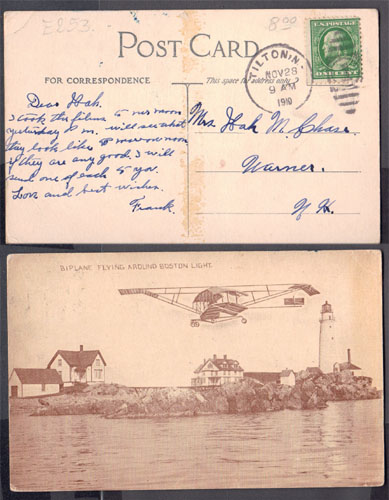 E253
8.00
POST CARD
FOR CORRESPONDENCE
This space for address only
U.S. POSTAGE
ONE CENT
TILTON, N.
NOV 28
9 AM
1910
Dear Idah.
I took the films to
yesterday P.M. will see what
they look like to morrow noon
if they are any good, I will
send one of each to you.
Love and best wishes.
Frank.
Mrs. Idah M. Chase.
Warner.
N.H.
BIPLANE FLYING AROUND BOSTON LIGHT.